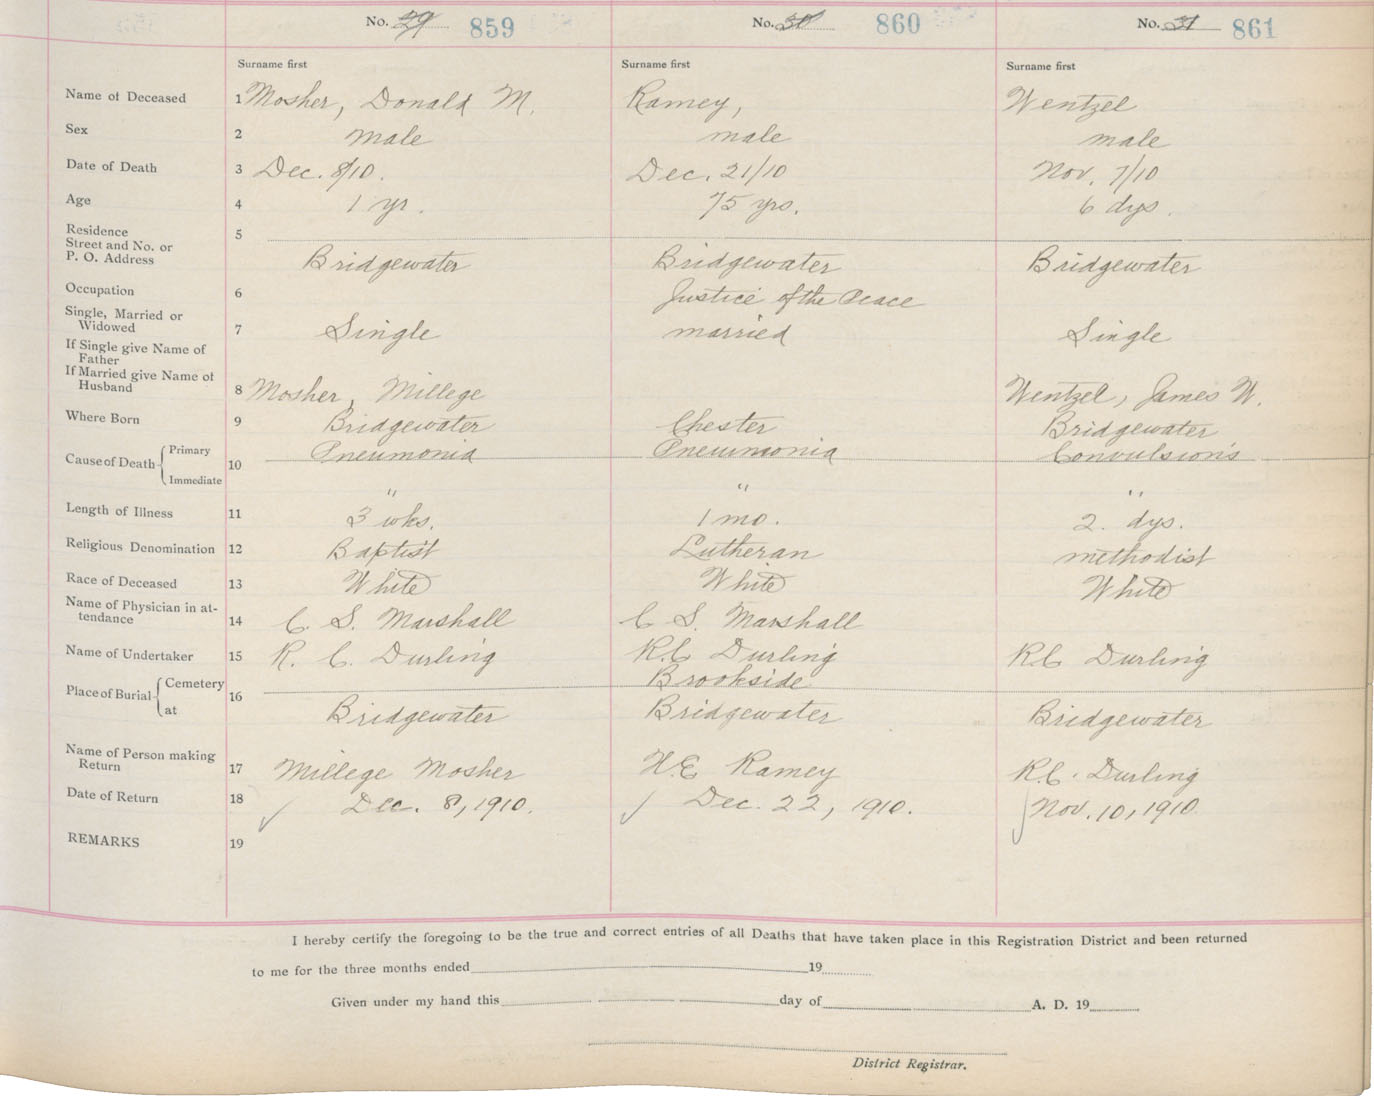 No. 29 859 No. 30 860 No. 31 861
Surname first Surname first Surname first
Name of Deceased 1 Mosher, Donald M. Ramey, Wentzel
Sex 2 male male male
Date of Death 3 Dec. 8/10. Dec. 21/10 Nov. 7/10
Age 4 1 yr. 75 yrs. 6 dys.
Residence 5
Street and No. or
P. O. Address Bridgewater Bridgewater Bridgewater
Occupation 6 Justice of the Peace
Single, Married or
Widowed 7 Single married Single
If Single give Name of
Father
If Married give Name of
Husband 8 Mosher, Millege Wentzel, James W.
Where Born 9 Bridgewater Chester Bridgewater
Cause of Death Primary 10 Pneumonia Pneumonia Convulsions
Immediate " " "
Length of Illness 11 3 wks. 1 mo. 2. dys.
Religious Denomination 12 Baptist Lutheran methodist
Race of Deceased 13 White White White
Name of Physician in at-
tendance 14 C. S. Marshall C S. Marshall
Name of Undertaker 15 R. C. Durling R.C Durling R C Durling
Place of Burial Cemetery 16 Brookside
at Bridgewater Bridgewater Bridgewater
Name of Person making
Return 17 Millege Mosher W.E Ramey R.C. Durling
Date of Return 18 Dec. 8, 1910. Dec. 22, 1910. Nov. 10, 1910
REMARKS 19
I hereby certify the foregoing to be the true and correct entries of all Deaths that have taken place in this Registration District and been returned
to me for the three months ended 19
Given under my hand this day of A. D. 19
District Registrar.